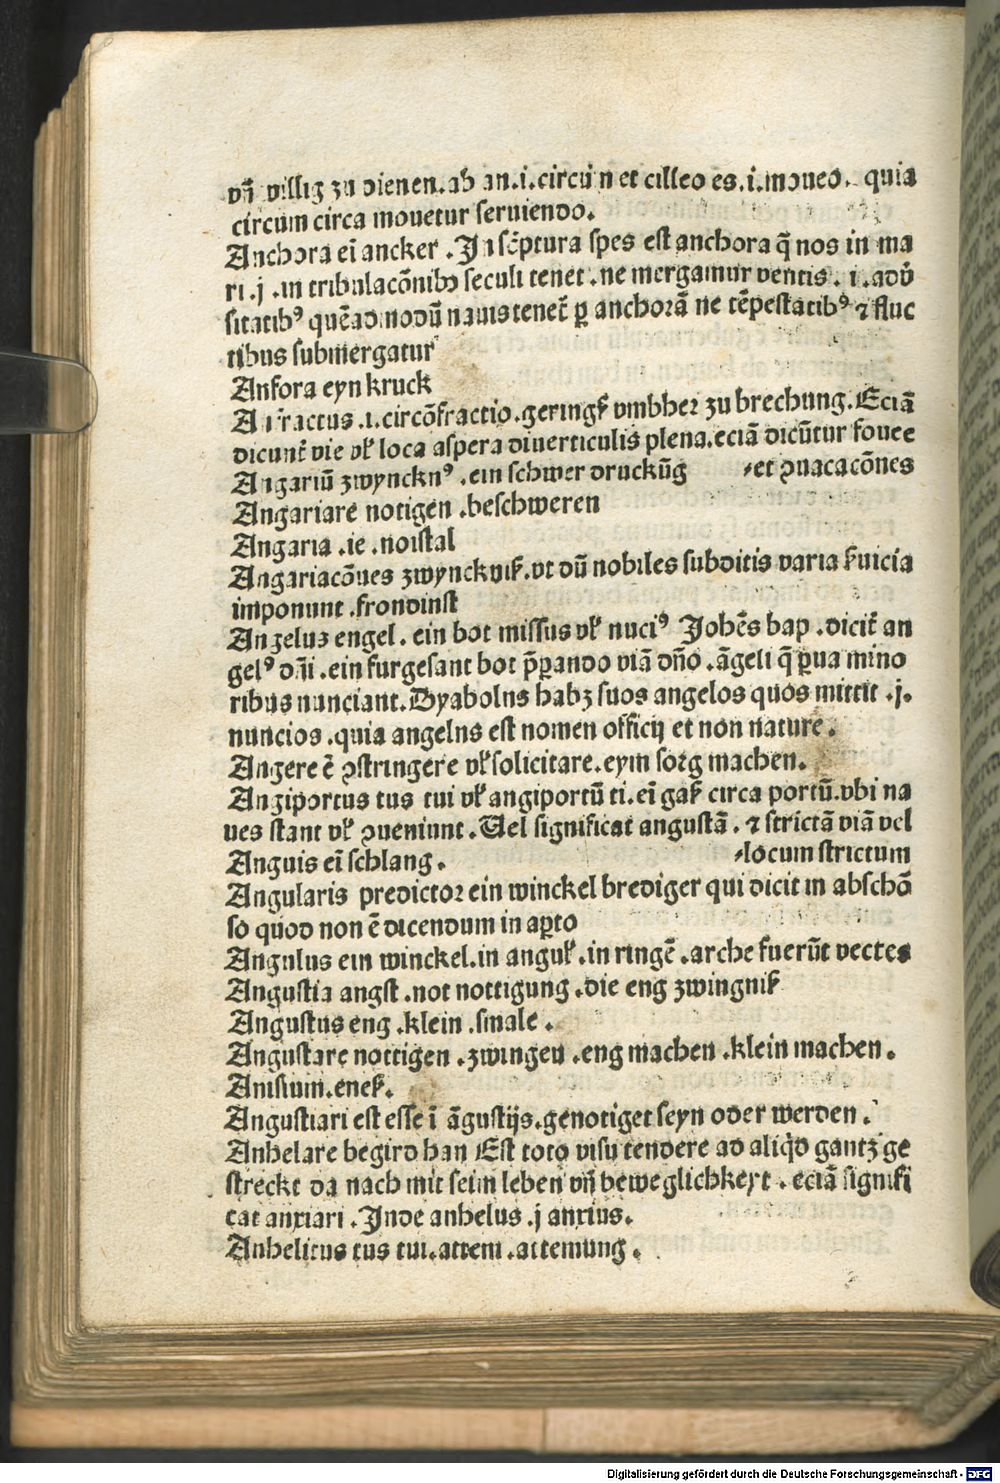 vñ villig zu dienen.ab an.i.circũ n et cilleo es.i.moueo. quia
circum circa mouetur seruiendo.
Anchora eĩ ancker .In sc̃ptura spes est anchora q̃ nos in ma
ri .j .in tribulacõnibꝫ seculi tenet .ne mergamur ventis. i .aduẽ
sitatibꝰ quẽadmodũ nauis tenet̃ ꝑ anchorã ne tẽpestatibꝰ ⁊ fluc
tibus submergatur
Anfora eyn kruck
Anfractus .i.circõfractio.geringſ̃ vmbher zu brechung.Eciã
dicunt̃ vie vl̃ loca aspera diuerticulis plena.eciã dicũtur fouee
Angariũ zwyncknꝰ .ein schwer druckũg ⸗et ꝯuacacõnes
Angariare notigen .beschweren
Angaria .ie .noistal
Angariacõnes zwyncknis̃.vt dũ nobiles subditis varia s̃uicia
imponunt .frondinst
Angelus engel. ein bot missus vl̃ nuciꝰ Johẽs bap .dicit̃ an
gelꝰ dñi .ein furgesant bot p̃ꝑando viã dño .ãgeli q̃ ꝑua mino
ribus nunciant.Dyabolus habꝫ suos angelos quos mittit .j.
nuncios .quia angelus est nomen officij et non nature .
Angere ẽ ꝯstringere vl̃ solicitare.eym sorg machen.
Angiportus tus tui vl̃ angiportũ ti.eĩ gas̃ circa portũ.vbi na
ues stant vl̃ ꝯueniunt .Uel significat angustã . ⁊ strictã viã vel
Anguis eĩ schlang . ⸗locum strictum
Angularis predictor ein winckel brediger qui dicit in abschõ
so quod non ẽ dicendum in aꝑto
Angulus ein winckel.in angul̃ .in ringẽ .arche fuerũt vectes
Angustia angst .not nottigung .die eng zwingnis̃
Angustus eng .klein .smale .
Angustare nottigen .zwingen .eng machen .klein machen .
Anisium.enes̃.
Angustiari est esse ĩ ãgustijs.genotiget seyn oder werden .
Anhelare begird han Est toto visu tendere ad aliqͥd gantz ge
streckt da nach mit seim leben vñ beweglichkeyt . eciã signifi
cat anxiari .Inde anhelus .j anxius.
Anhelitus tus tui.attem .attemung .
Digitalisierung gefördert durch die Deutsche Forschungsgemeinschaft - DFG